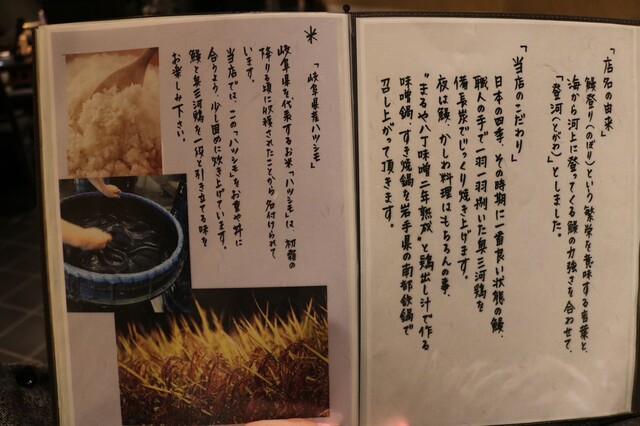 「店名の由来」
鰻登り(のぼり)という繁栄を意味する言葉と、
海から河上に登ってくる鰻の力強さを合わせて、
「登河(とがわ)」としました。
「当店のこだわり」
日本の四季、その時期に一番良い状態の鰻、
職人の手で一羽一羽捌いた奥三河鶏を
備長炭でじっくり焼き上げます。
夜は鰻、かしわ料理はもちろんの事、
"まるや八丁味噌二年熟成"と鶏出し汁で作る
味噌鍋、すき焼鍋を岩手県の南部鉄鍋で
召し上がって頂きます。
*
「岐阜県産ハツシモ」
岐阜県を代表するお米「ハツシモ」は、初霜の
降りる頃に収穫されたことから名付けられて
います。
当店では、この「ハツシモ」をお重や丼に
合うよう、少し固めに炊き上げています。
鰻と奥三河鶏を一段と引き立てる味を
お楽しみ下さい。